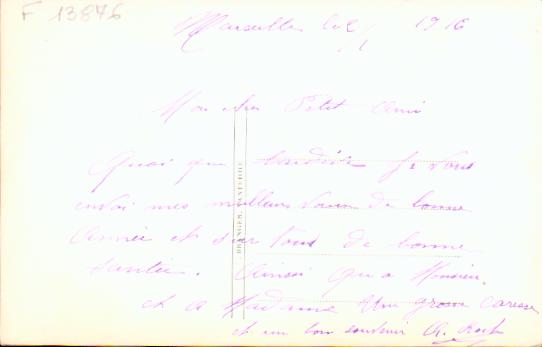 F 13876
Marseille le 1916
Mon cher Petit Ami
Quoi que Je vous
envoi mes meilleurs Voeux de bonne
Année et surtout de bonne
santée. Ainsi qu a Monsieur.
et a Madame Une grosse Caresse
et un bon souvenir